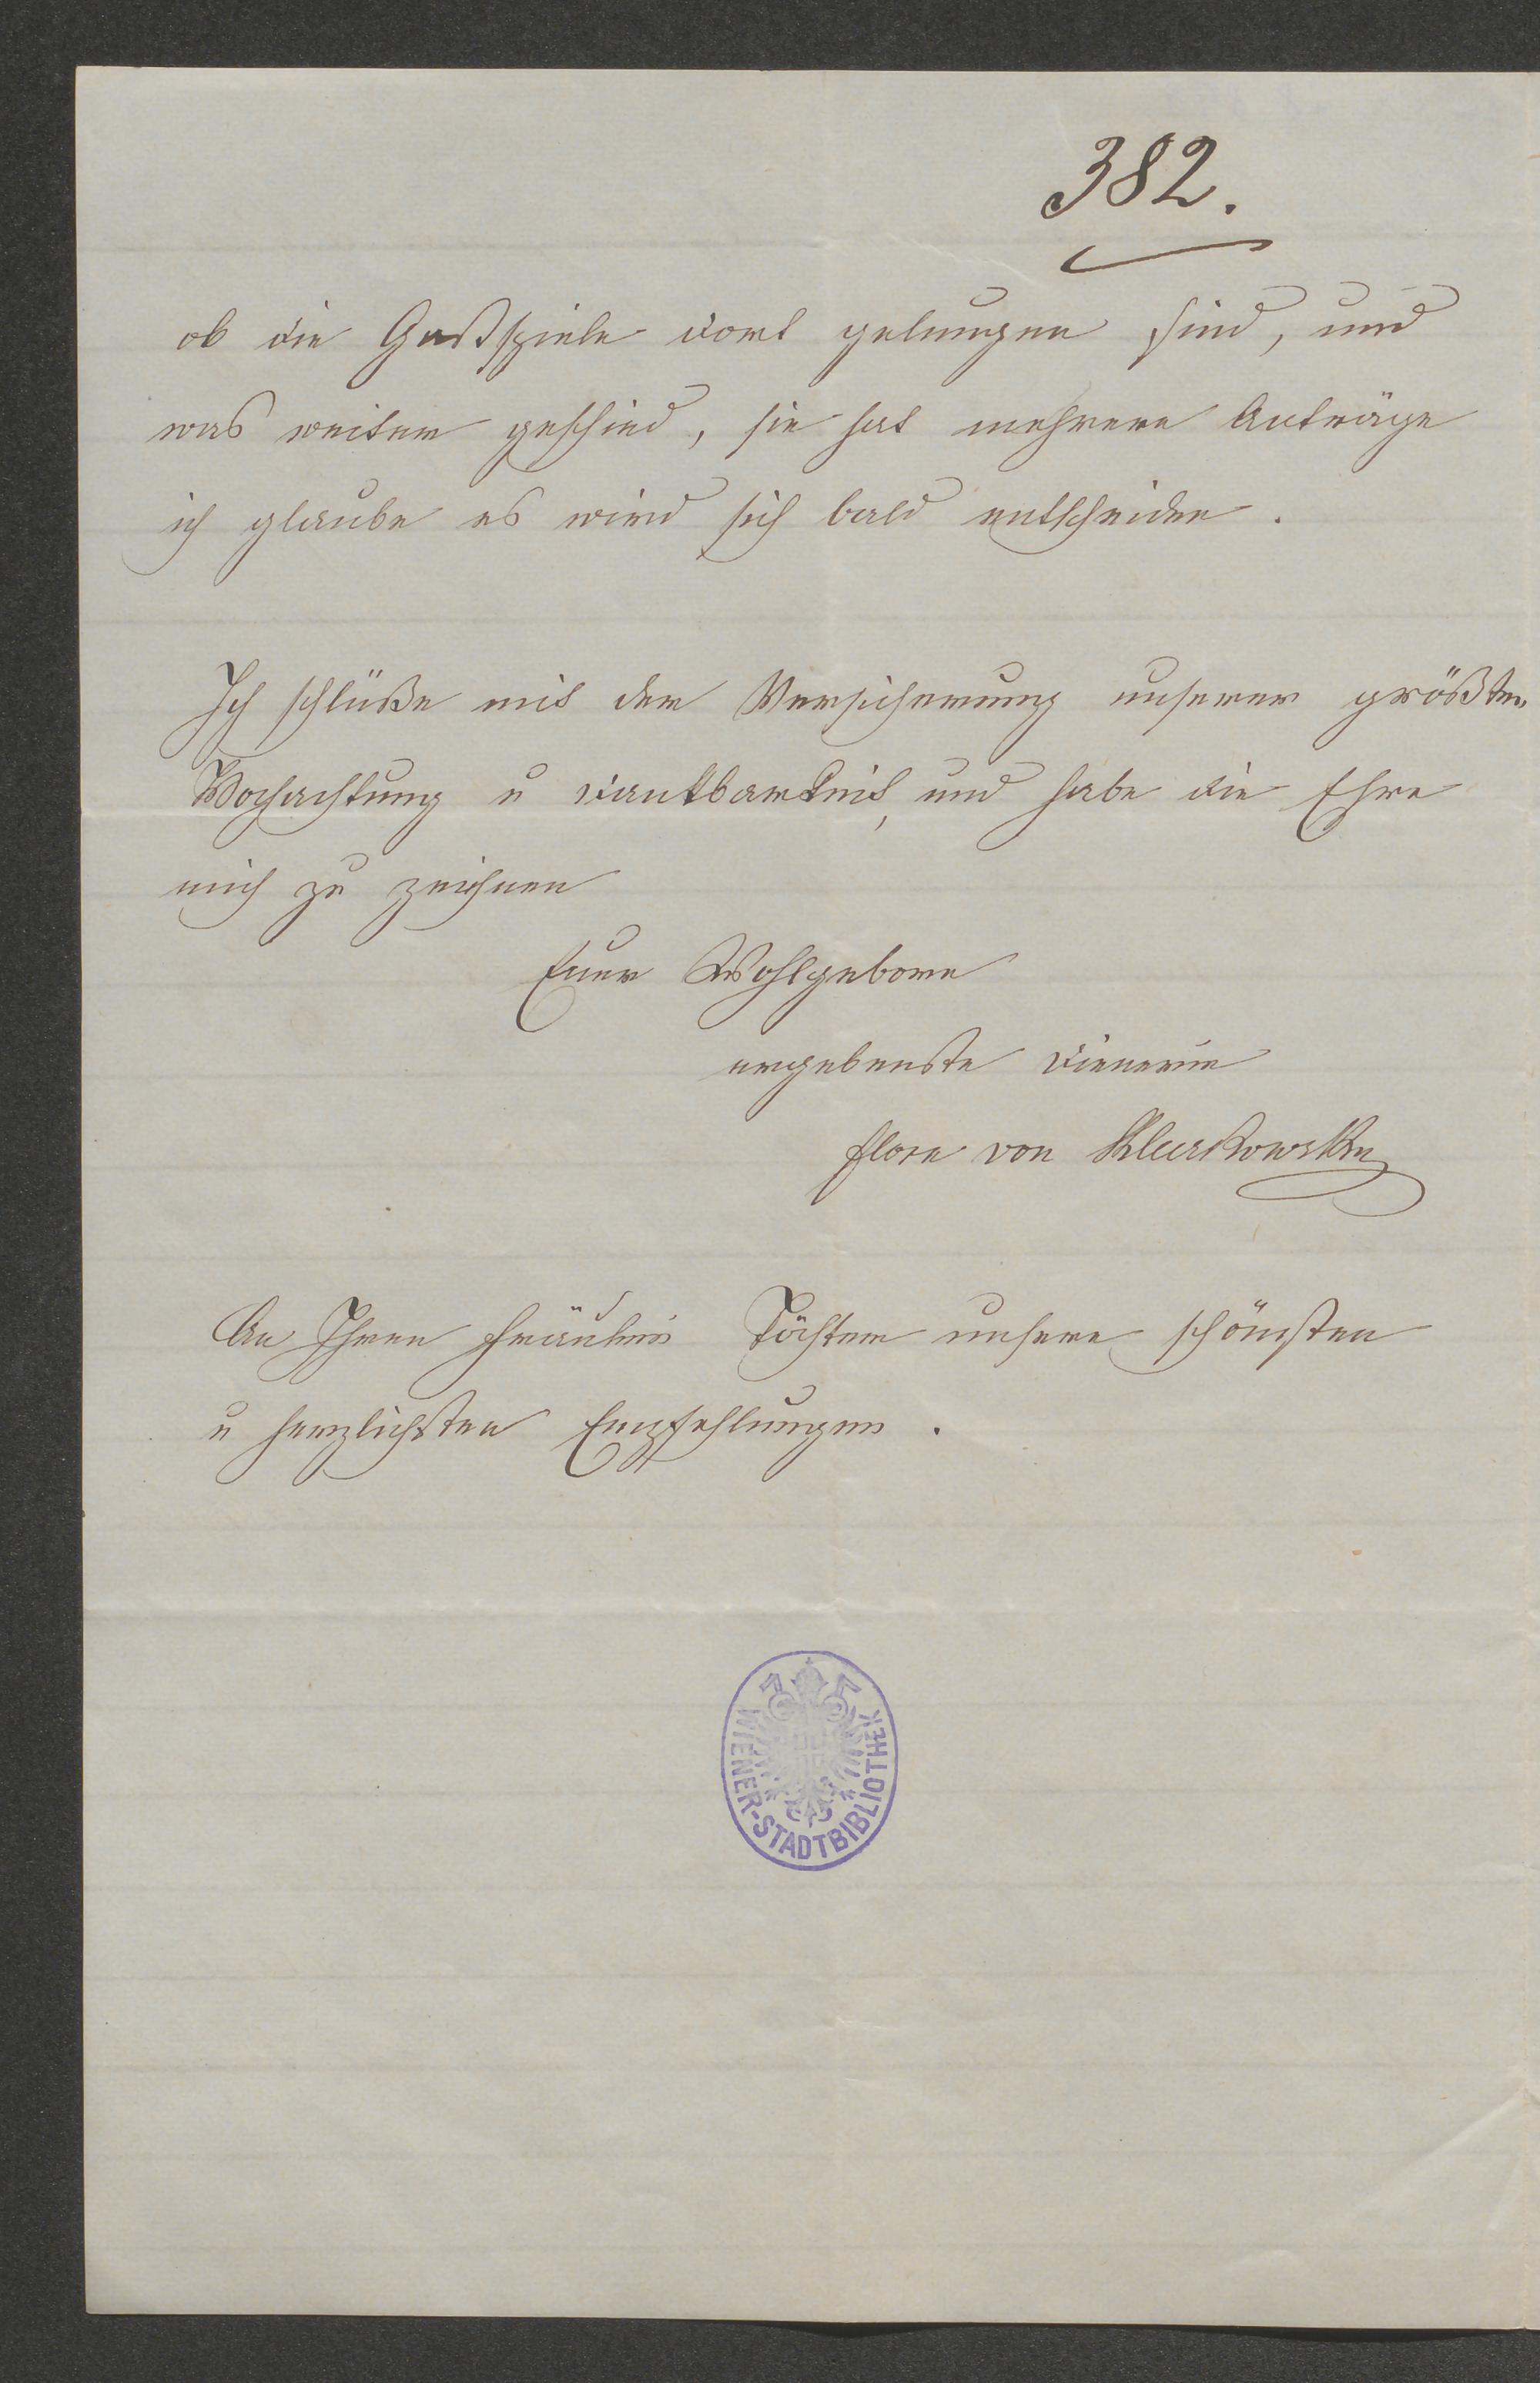 382.
ob die Gastspiele dort gelungen sind, und
was weiter geschied, sie hat mehrere Anträge
ich glaube es wird sich bald entscheiden.
Ich schlüße mit der Versicherung unserer größten
Hochachtung u dankbarkeit, und habe die Ehre
mich zu zeichnen
Euer Wohlgeborn
ergebenste dienerin
Flora von
An Ihren Fräulein Töchter unsere schönsten
u herzlichsten Empfehlungen.
WIENER-STADTBIBLIOTHEK